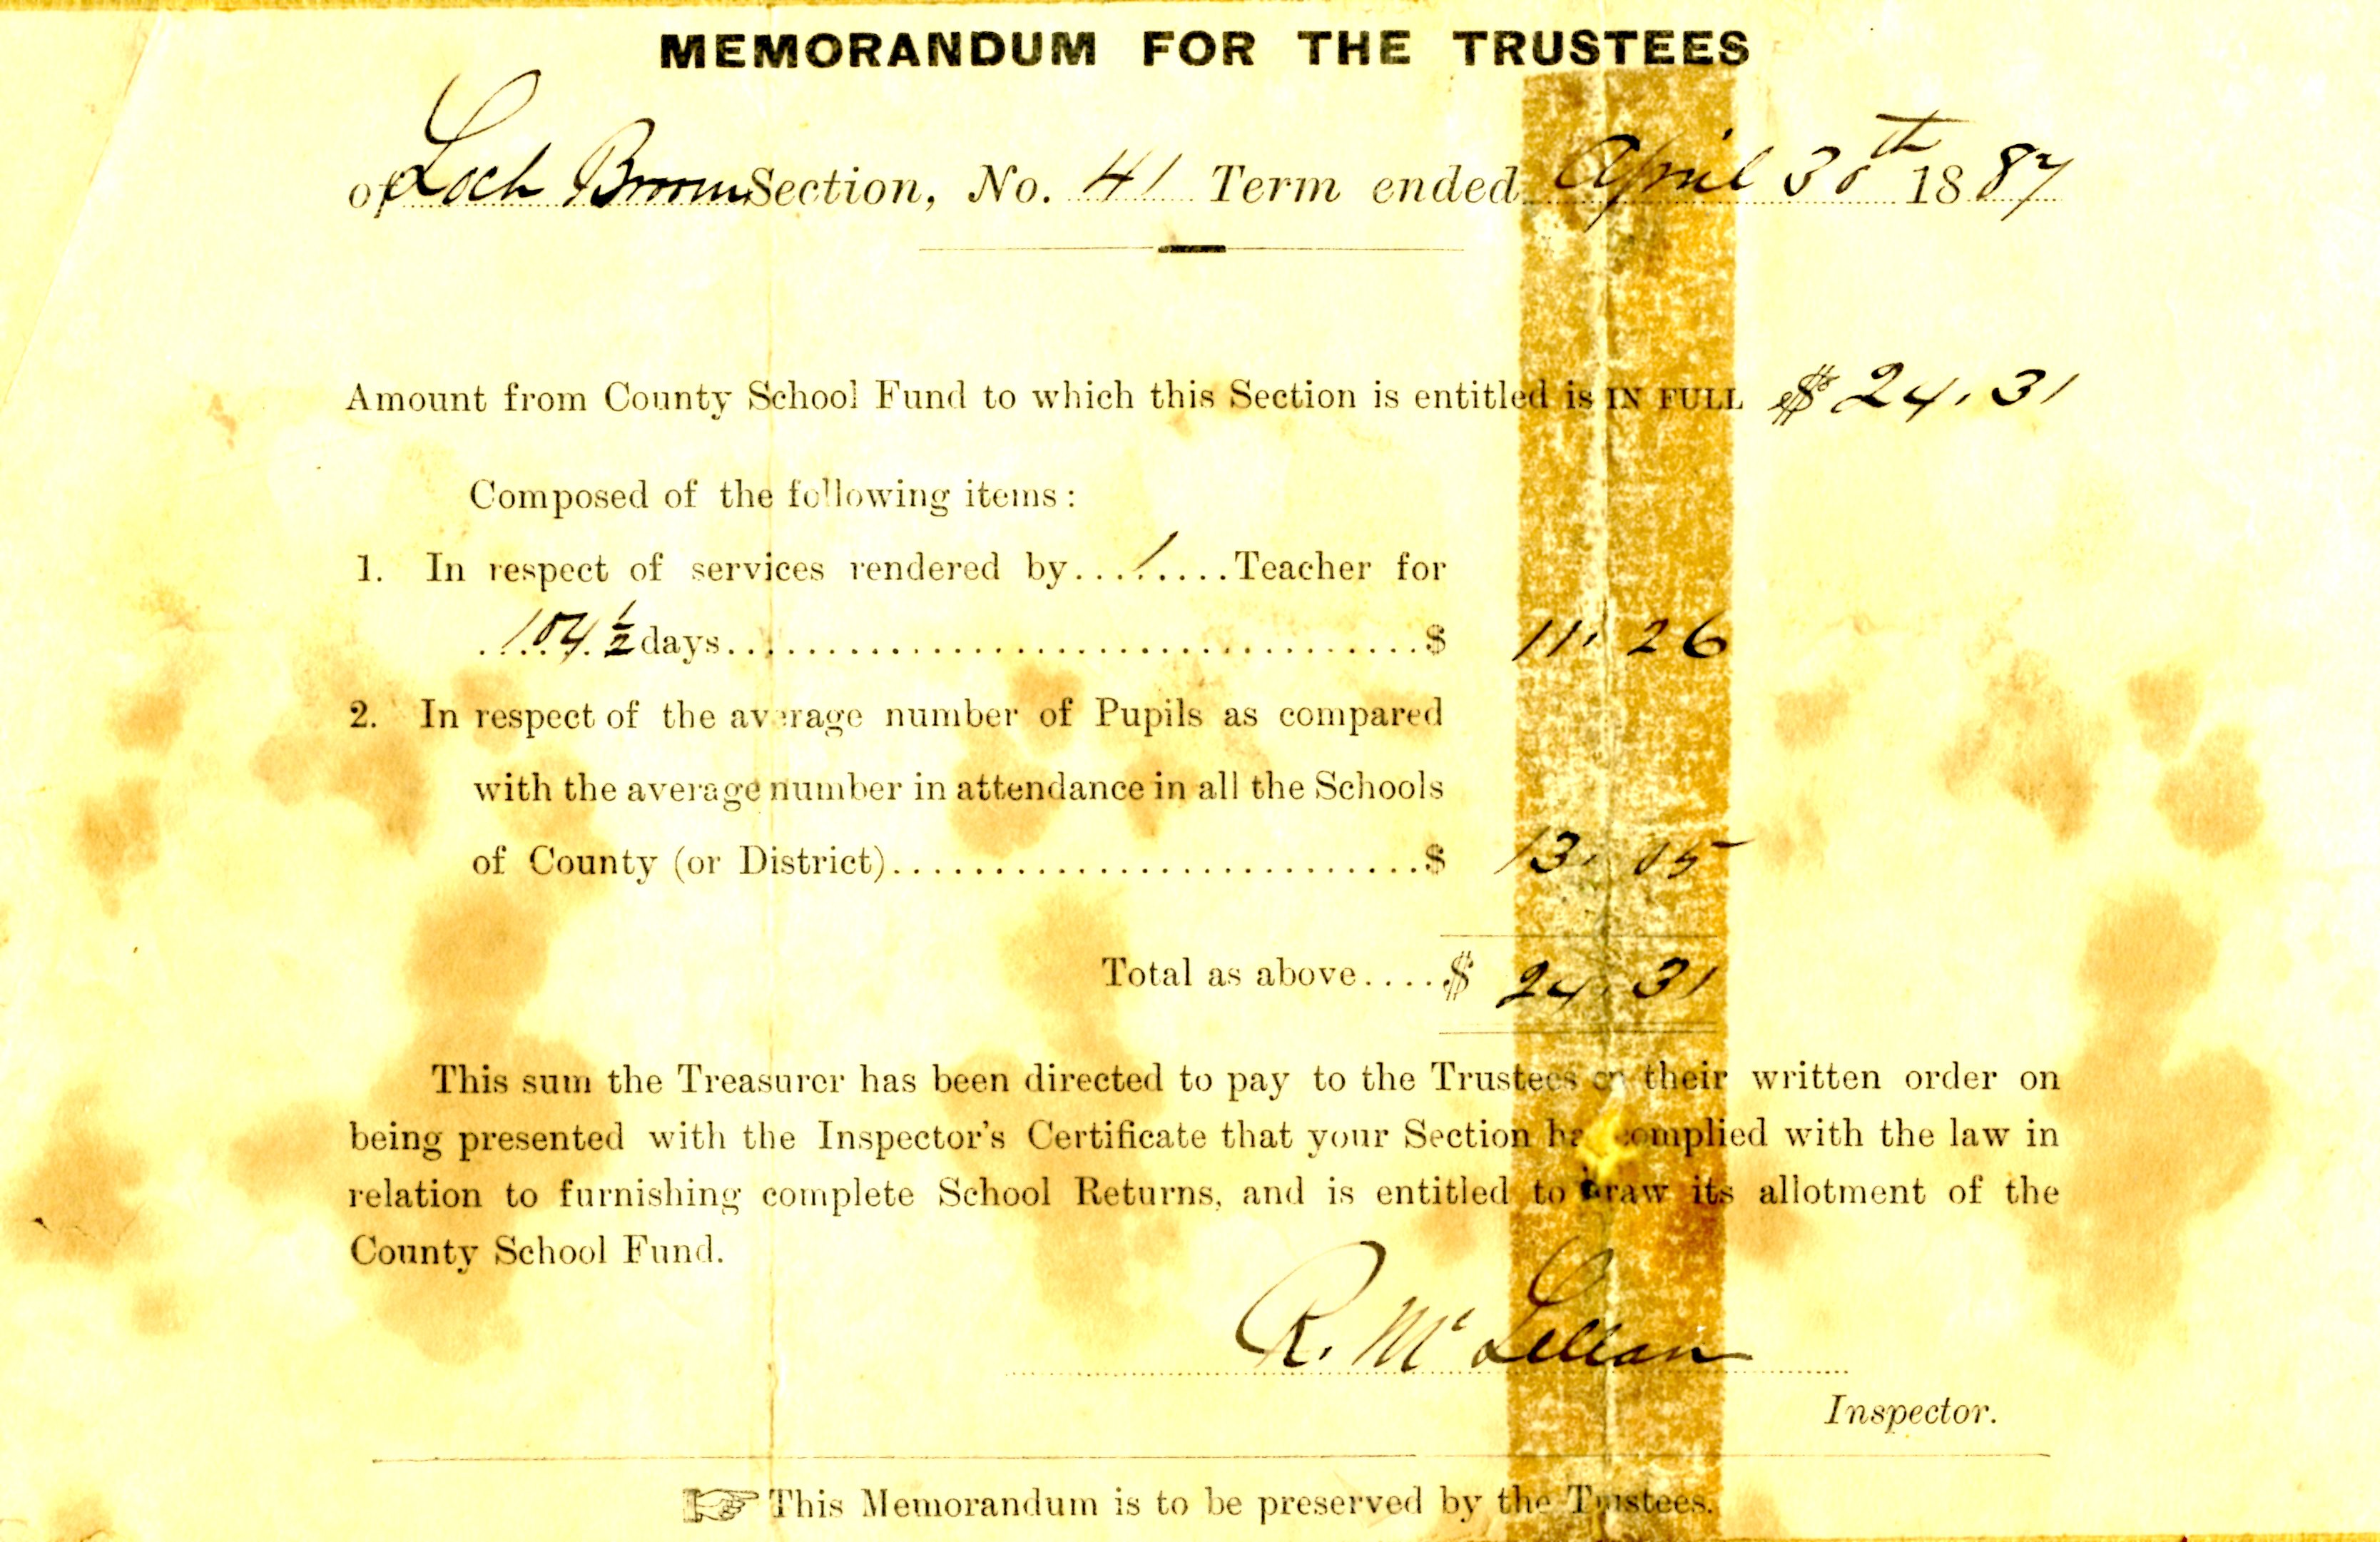 MEMORANDUM FOR THE TRUSTEES
of Loch Broom Section, No. 41 Term ended April 30th 1887
Amount from County School Fund to which this Section is entitled is IN FULL $ 24.31
Composed of the following items:
1. In respect of services rendered by...1....Teacher for
104 1/2 days........................................$ 11.26
2. In respect of the average number of Pupils as compared
with the average number in attendance in all the Schools
of County (or District)............................$ 13.05
Total as above....$ 24.31
This sum the Treasurer has been directed to pay to the Trustees or their written order on
being presented with the Inspector's Certificate that your Section has complied with the law in
relation to furnishing complete School Returns, and is entitled to draw its allotment of the
County School Fund.
R. McLellan
Inspector.
☞ This Memorandum is to be preserved by the Trustees.